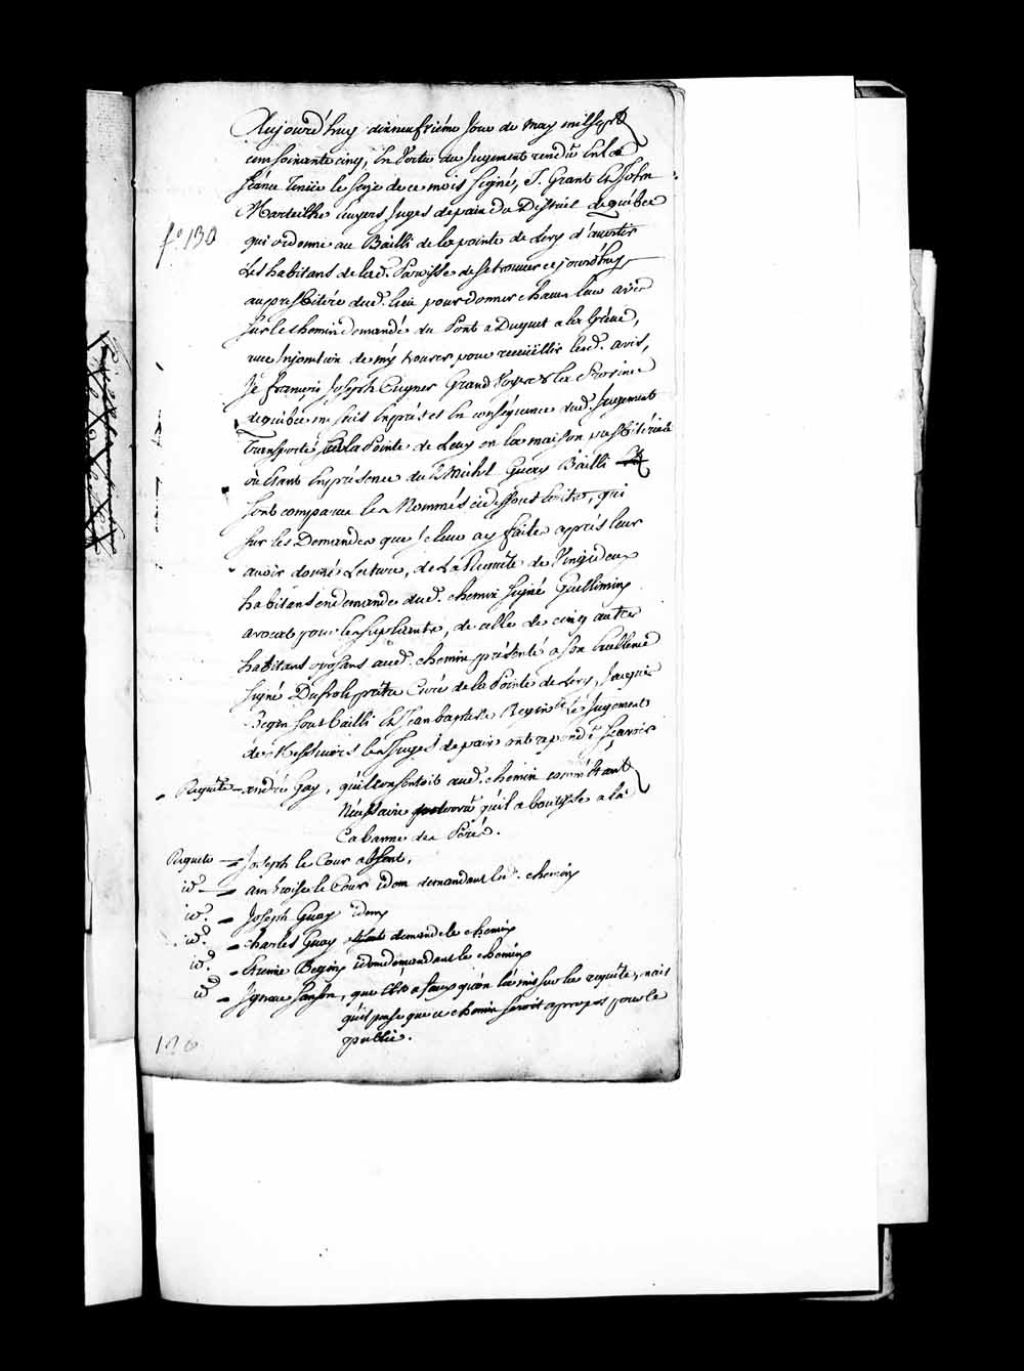 Aujourd'huy dixneufviéme Jour de may mil sept
cent soixante cinq, En Vertu du Jugement rendu En la
séance Tenüe le seize de ce mois signé, J. Grant Et John
Marteilhe Ecuyers Juges de paix du District de québec
f.o 130
qui ordonne au Bailli de la pointe de Levy d'avertir
Les habitans de lad. Paroisse de se trouver ce jourd'huy
au presbitére dud. lieu pour donner chacun leur avis
sur le chemin demandé du Pont a Duquet a la Gréve,
avec Injonction de m'y trouver pour recüeillir lesd. avis,
Je François Joseph Cugnet Grand Voyer de la Province
de québec me suis Exprés et En conséquence dud. Jugement
Transporté sur la Pointe de Levy en la maison presbitérale
où Etant En présence du S. Michel Guay Bailli
sont comparus les Nommés cidessous Ecrits, qui
sur les Demandes que Je leur ay faites aprés leur
avoir donné Lecture, de La Requête de Vingt deux
habitans en demande dud. chemin signé Guillimin
avocat pour les supliants, de celle de cinq autres
habitans oposans aud. chemin présenté a son Excellence
signé Dufrost prêtre Curé de la Pointe de Levy, Jacques
Begin sous bailli Et Jean baptiste Begin Et Le Jugement
de Messieurs les Juges de paix ont repondu sçavoir
Requête - andré Gay, qu'il consentoit aud. chemin comme Etant
Nécessaire qu'il aboutisse a la
Cabanne des Péres.
Requete - Joseph le Cour absent.
id. - ambroise le Cour idem demandant led. chemin
id. - Joseph Guay idem
id. - charles Guay demande le chemin
id. - Etienne Begin idem demandant le chemin
id. - Ignace Samson, que c'est a faux qu'on l'a mis sur la requête, mais
qu'il pense que ce chemin seroit apropos pour le
public.